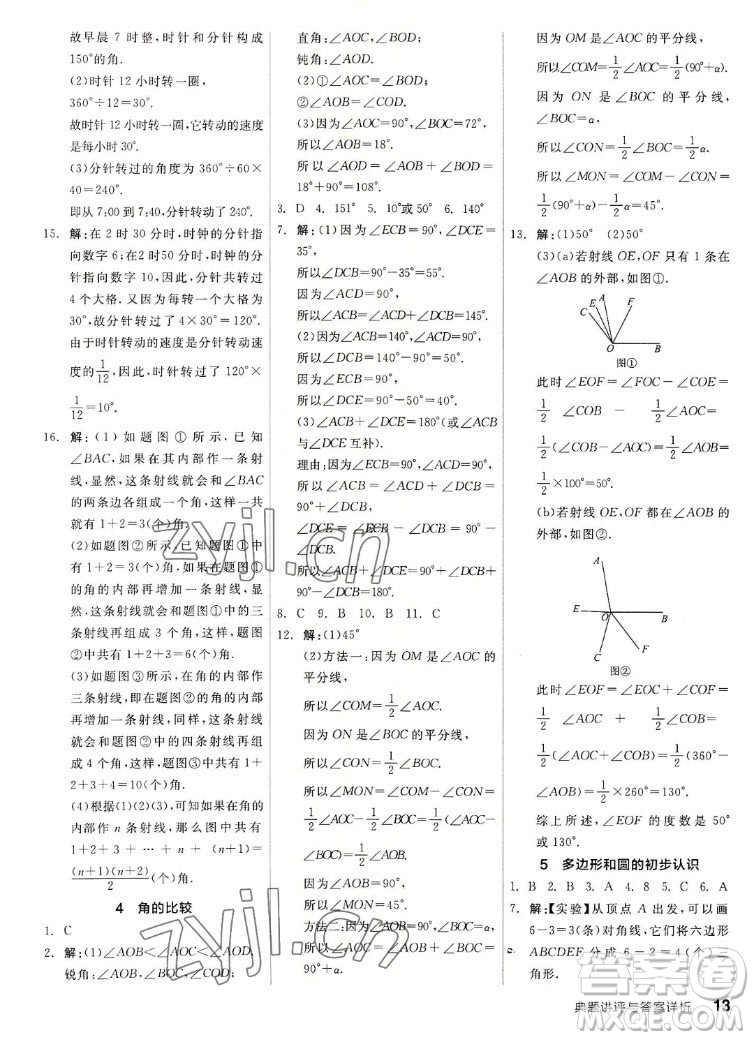 故早晨 7 时整，时针和分针构成
150°的角.
(2)时针 12 小时转一圈，
360°÷12=30°.
故时针 12 小时转一圈,它转动的速度
是每小时 30°.
(3)分针转过的角度为 360°÷60×
40=240°.
即从 7:00 到 7:40,分针转动了 240°.
15. 解:在 2 时 30 分时,时钟的分针指
向数字 6;在 2 时 50 分时,时钟的分
针指向数字 10,因此,分针共转过
4 个大格. 又因为每一大格对应
30°,故分针转过了 4×30°=120°.
由于时针转动速度是分针转动速
度的1/12,故时针转过了 120°×
1/12=10°.
16. 解:(1)如题图①所示,已知
∠BAC,如果在其内部作一条射
线,显然这条射线就会和∠BAC
的两条边各组成一个角,这样一共
就有 1+2=3(个)角.
(2)如题图②所示,题图①中有
1+2=3(个)角,如果再在题图①
的角的内部再增加一条射线,即
这条射线就会和题图①中的三条
射线再组成 3 个角,即题图②中共
有 1+2+3=6(个)角.
(3)如题图③,在角的内部作
三条射线,即在题图②的角的内部
再增加一条射线,同样,这条射线
就会和题图②中的四条射线再组
成 4 个角,即题图③中共有 1+
2+3+4=10(个)角.
(4)根据(1)(2)(3)可知,在角的
内部作 n 条射线,那么图中共有
1 + 2 + 3 + … + n + (n + 1) =
(n+1)(n+2)/2(个)角.
4 角的比较
1. C
2. 解:(1)∠AOB<∠AOC<∠AOD.
锐角:∠AOB,∠BOC,∠COD;
直角:∠AOC,∠BOD;
钝角:∠AOD.
(2)①∠AOC=∠BOD;
②∠AOB=∠COD.
(3)因为∠AOC=90°,∠BOC=72°,
所以∠AOB=18°.
所以∠AOD=∠AOB+∠BOD=
18°+90°=108°.
3. D 4. 151° 5. 10°或50° 6. 140°
7. 解:(1)因为∠ECB=90°,
∠DCE=35°,
所以∠DCB=90°-35°=55°.
因为∠ACD=90°,
所以∠ACB=∠ACD+∠DCB=145°.
(2)因为∠ACB=140°,∠ACD=90°,
所以∠DCB=140°-90°=50°.
因为∠ECB=90°,
所以∠DCE=90°-50°=40°.
(3)∠ACB+∠DCE=180°(或∠ACB
与∠DCE 互补).
理由:因为∠ECB=90°,∠ACD=90°,
所以∠ACB=∠ACD+∠DCB=
90°+∠DCB,
∠DCE=∠ECB-∠DCB=90°-
∠DCB.
所以∠ACB+∠DCE=90°+
∠DCB+90°-∠DCB=180°.
8. C 9. B 10. B 11. C
12. 解:(1)45°
(2)方法一:因为 OM 是∠AOC 的
平分线,
所以∠COM=1/2∠AOC.
因为 ON 是∠BOC 的平分线,
所以∠CON=1/2∠BOC.
所以∠MON=∠COM-∠CON=
1/2∠AOC-1/2∠BOC=1/2(∠AOC-
∠BOC)=1/2∠AOB=45°.
方法二:因为∠AOC=∠AOB+
∠BOC,∠AOB=90°,∠BOC=α,
所以∠AOC=90°+α.
因为 OM 是∠AOC 的平分线,
所以∠COM=1/2∠AOC=1/2(90°+α).
因为 ON 是∠BOC 的平分线,
∠BOC=α,
所以∠CON=1/2∠BOC=1/2α.
所以∠MON=∠COM-∠CON=
1/2(90°+α)-1/2α=45°.
13. 解:(1)50° (2)50°
(3)(a)若射线OE,OF只有 1 条在
∠AOB的外部,如图①.
A
E
C
F
O
B
图①
此时∠EOF=∠FOC-∠COE=
1/2∠COB-1/2∠AOC=
1/2(∠COB-∠AOC)=1/2∠AOB=
1/2×100°=50°.
(b)若射线OE,OF都在∠AOB的
外部,如图②.
A
E
O
B
C
F
图②
此时∠EOF=∠EOC+∠COF=
1/2∠AOC + 1/2∠COB =
1/2(∠AOC+∠COB)=1/2(360°-
∠AOB)=1/2×260°=130°.
综上所述,∠EOF的度数是50°
或130°.
5 多边形和圆的初步认识
1. B 2. B 3. A 4. 8 5. C 6. A
7. 解:【实验】从顶点 A 出发,可以画
6-3=3(条)对角线,它们将六边形
ABCDEF 分成 6-2=4(个)三
角形.
典题讲评与答案详析 13
zyjl.cn
zyjl.cn
答案圈